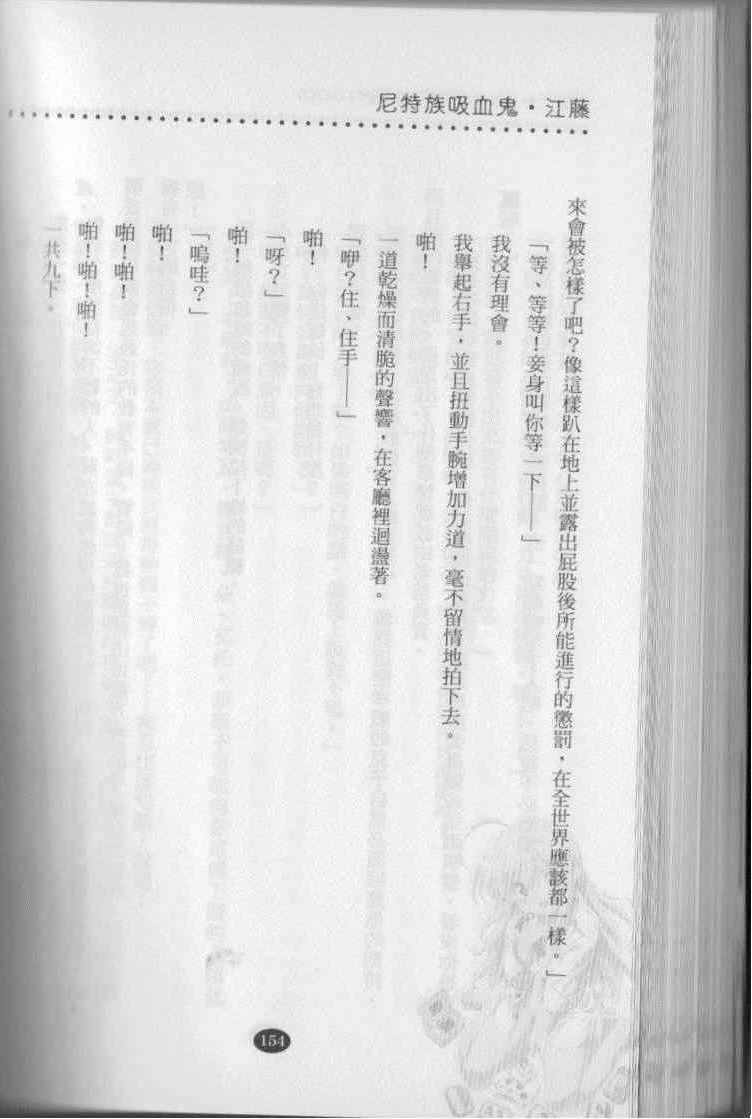 尼特族吸血鬼・江藤
來會被怎樣了吧？像這樣趴在地上並露出屁股後所能進行的懲罰，在全世界應該都一樣。」
「等、等等！妾身叫你等一下——」
我沒有理會。
我舉起右手，並且扭動手腕增加力道，毫不留情地拍下去。
啪！
一道乾燥而清脆的聲響，在客廳裡迴盪著。
「咿？住、住手——」
啪！
「呀？」
啪！
「嗚哇？」
啪！
啪！啪！
啪！啪！啪！
一共九下。
154